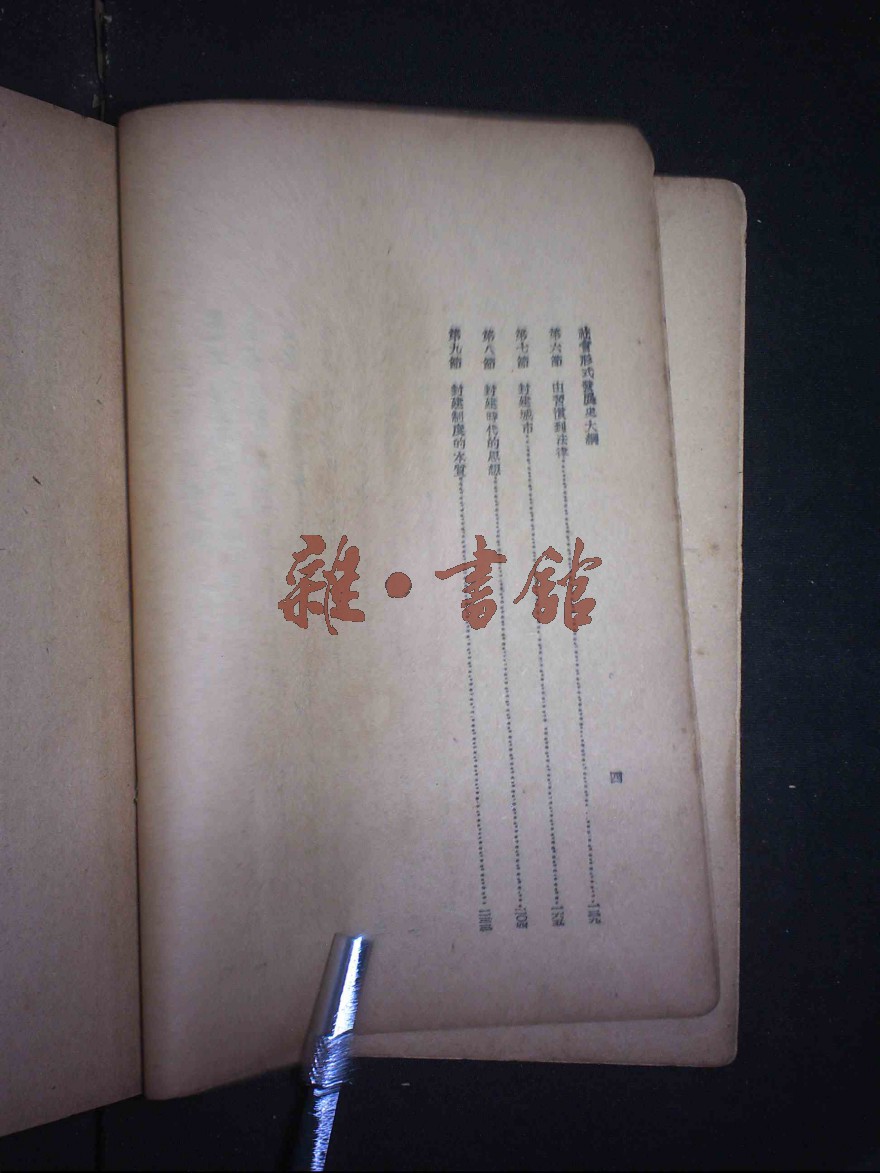 社會形式發展史大綱
四
第六節 由習慣到法律
第七節 封建城市
第八節 封建時代的思想
第九節 封建制度的本質
雜·書館